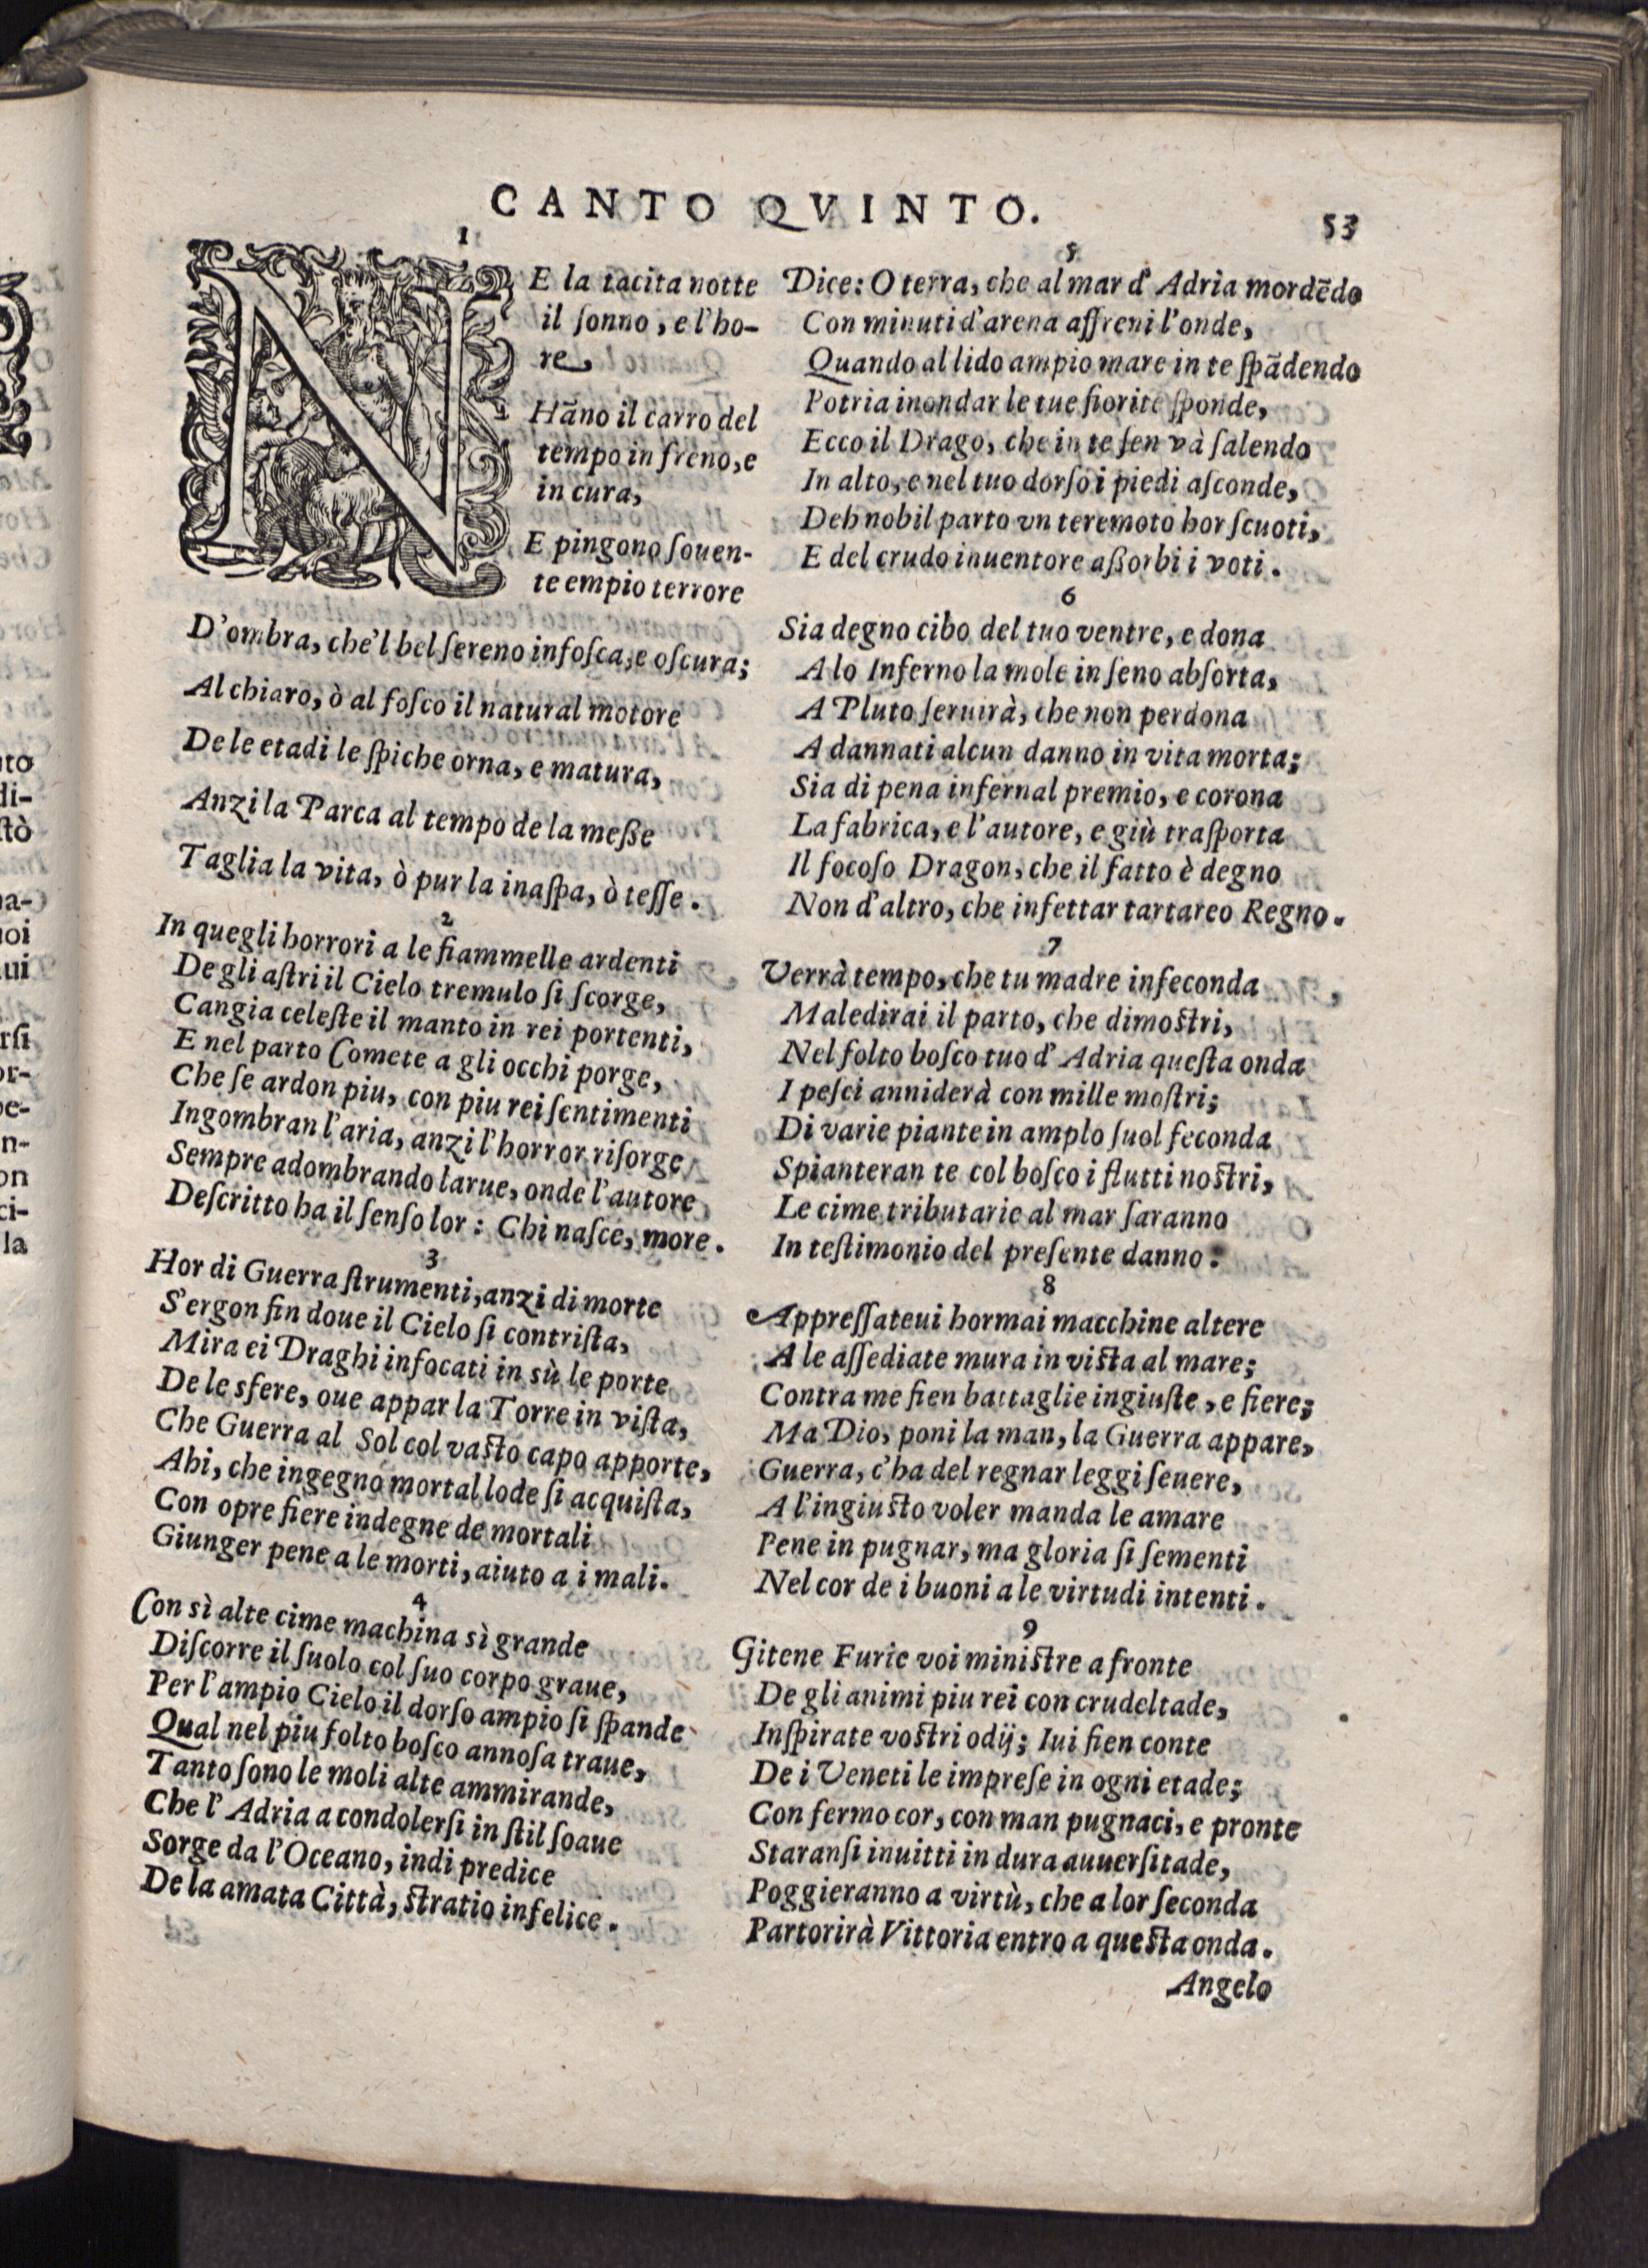 CANTO QVINTO.
53
1
NE la tacita notte
il ſonno, e l'ho-
re
Hāno il carro del
tempo in freno, e
in cura,
E pingono ſouen-
te empio terrore
D'ombra, che'l bel ſereno infoſca, e oſcura;
Al chiaro, ò al foſco il natural motore
De le etadi le ſpiche orna, e matura,
Anzi la Parca al tempo de la meßе
Taglia la vita, ò pur la inaſpa, ò teſſe.
2
In quegli horrori a le fiammelle ardenti
De gli aſtri il Cielo tremulo ſi ſcorge,
Cangia celeſte il manto in rei portenti,
E nel parto Comete a gli occhi porge,
Che ſe ardon piu, con piu rei ſentimenti
Ingombran l'aria, anzi l'horror riſorge
Sempre adombrando larue, onde l'autore
Deſcritto ha il ſenſo lor: Chi naſce, more.
3
Hor di Guerra ſtrumenti, anzi di morte
S'ergon fin doue il Cielo ſi contriſta,
Mira ei Draghi infocati in sù le porte
De le sfere, oue appar la Torre in viſta,
Che Guerra al Sol col vaſto capo apporte,
Ahi, che ingegno mortal lode ſi acquiſta,
Con opre fiere indegne de mortali
Giunger pene a le morti, aiuto a i mali.
4
Con sì alte cime machina sì grande
Diſcorre il ſuolo col ſuo corpo graue,
Per l'ampio Cielo il dorſo ampio ſi ſpande
Qual nel piu folto boſco annoſa traue,
Tanto ſono le moli alte ammirande,
Che l'Adria a condolerſi in ſtil ſoaue
Sorge da l'Oceano, indi predice
De la amata Città, ſtratio infelice.
5
Dice: O terra, che al mar d'Adria mordēdo
Con minuti d'arena affreni l'onde,
Quando al lido ampio mare in te ſpādendo
Potria inondar le tue fiorite ſponde,
Ecco il Drago, che in te ſen và ſalendo
In alto, e nel tuo dorſo i piedi aſconde,
Deh nobil parto vn teremoto hor ſcuoti,
E del crudo inuentore aßorbi i voti.
6
Sia degno cibo del tuo ventre, e dona
A lo Inferno la mole in ſeno abſorta,
A Pluto ſeruirà, che non perdona
A dannati alcun danno in vita morta;
Sia di pena infernal premio, e corona
La fabrica, e l'autore, e giù traſporta
Il focoſo Dragon, che il fatto è degno
Non d'altro, che infettar tartareo Regno.
7
Verrà tempo, che tu madre infeconda
Maledirai il parto, che dimoſtri,
Nel folto boſco tuo d'Adria queſta onda
I peſci anniderà con mille moſtri;
Di varie piante in amplo ſuol feconda
Spianteran te col boſco i flutti noſtri,
Le cime tributarie al mar ſaranno
In teſtimonio del preſente danno.
8
Appreſſateui hormai macchine altere
A le aſſediate mura in viſta al mare;
Contra me fien battaglie ingiuſte, e fiere;
Ma Dio, poni la man, la Guerra appare,
Guerra, c'ha del regnar leggi ſeuere,
A l'ingiuſto voler manda le amare
Pene in pugnar, ma gloria ſi ſementi
Nel cor de i buoni a le virtudi intenti.
9
Gitene Furie voi miniſtre a fronte
De gli animi piu rei con crudeltade,
Inſpirate voſtri odij; Iui fien conte
De i Veneti le impreſe in ogni etade;
Con fermo cor, con man pugnaci, e pronte
Staranſi inuitti in dura auuerſitade,
Poggieranno a virtù, che a lor ſeconda
Partorirà Vittoria entro a queſta onda.
Angelo